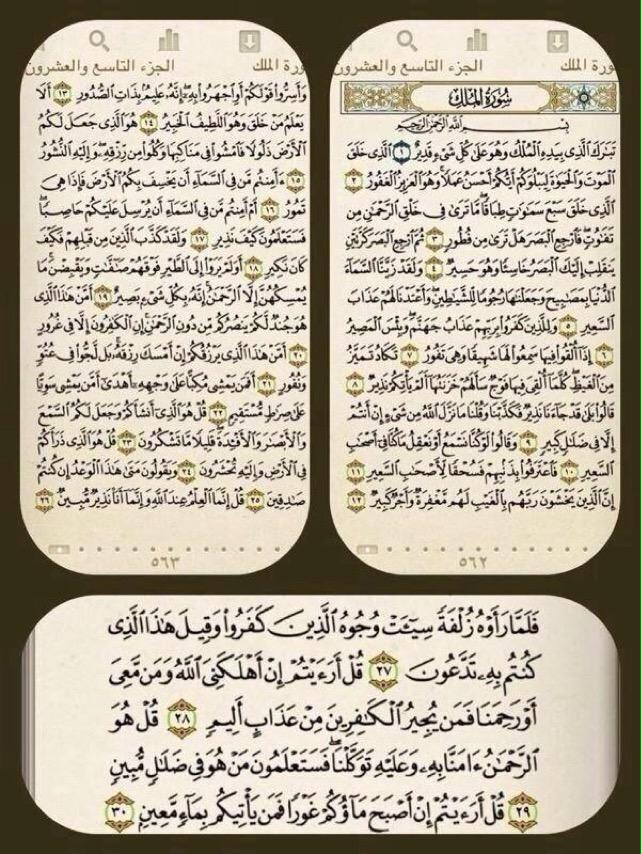 ورة الملك الجزء التاسع والعشرون
سُورَةُ المُلْكِ
بِسْمِ اللَّهِ الرَّحْمَٰنِ الرَّحِيمِ
تَبَٰرَكَ الَّذِي بِيَدِهِ الْمُلْكُ وَهُوَ عَلَىٰ كُلِّ شَيْءٍ قَدِيرٌ ١ الَّذِي خَلَقَ
الْمَوْتَ وَالْحَيَوٰةَ لِيَبْلُوَكُمْ أَيُّكُمْ أَحْسَنُ عَمَلًا وَهُوَ الْعَزِيزُ الْغَفُورُ ٢
الَّذِي خَلَقَ سَبْعَ سَمَٰوَٰتٍ طِبَاقًا مَّا تَرَىٰ فِي خَلْقِ الرَّحْمَٰنِ مِن
تَفَٰوُتٍ فَارْجِعِ الْبَصَرَ هَلْ تَرَىٰ مِن فُطُورٍ ٣ ثُمَّ ارْجِعِ الْبَصَرَ كَرَّتَيْنِ
يَنقَلِبْ إِلَيْكَ الْبَصَرُ خَاسِئًا وَهُوَ حَسِيرٌ ٤ وَلَقَدْ زَيَّنَّا السَّمَآءَ
الدُّنْيَا بِمَصَٰبِيحَ وَجَعَلْنَٰهَا رُجُومًا لِّلشَّيَٰطِينِ وَأَعْتَدْنَا لَهُمْ عَذَابَ
السَّعِيرِ ٥ وَلِلَّذِينَ كَفَرُوا بِرَبِّهِمْ عَذَابُ جَهَنَّمَ وَبِئْسَ الْمَصِيرُ
٦ إِذَآ أُلْقُوا فِيهَا سَمِعُوا لَهَا شَهِيقًا وَهِيَ تَفُورُ ٧ تَكَادُ تَمَيَّزُ
مِنَ الْغَيْظِ كُلَّمَآ أُلْقِيَ فِيهَا فَوْجٌ سَأَلَهُمْ خَزَنَتُهَآ أَلَمْ يَأْتِكُمْ نَذِيرٌ ٨
قَالُوا بَلَىٰ قَدْ جَآءَنَا نَذِيرٌ فَكَذَّبْنَا وَقُلْنَا مَا نَزَّلَ اللَّهُ مِن شَيْءٍ إِنْ أَنتُمْ
إِلَّا فِي ضَلَٰلٍ كَبِيرٍ ٩ وَقَالُوا لَوْ كُنَّا نَسْمَعُ أَوْ نَعْقِلُ مَا كُنَّا فِي أَصْحَٰبِ
السَّعِيرِ ١٠ فَاعْتَرَفُوا بِذَنبِهِمْ فَسُحْقًا لِّأَصْحَٰبِ السَّعِيرِ ١١
إِنَّ الَّذِينَ يَخْشَوْنَ رَبَّهُم بِالْغَيْبِ لَهُم مَّغْفِرَةٌ وَأَجْرٌ كَبِيرٌ ١٢
٥٦٢
ورة الملك الجزء التاسع والعشرون
وَأَسِرُّوا قَوْلَكُمْ أَوِ اجْهَرُوا بِهِ إِنَّهُ عَلِيمٌ بِذَاتِ الصُّدُورِ ١٣ أَلَا
يَعْلَمُ مَنْ خَلَقَ وَهُوَ اللَّطِيفُ الْخَبِيرُ ١٤ هُوَ الَّذِي جَعَلَ لَكُمُ
الْأَرْضَ ذَلُولًا فَامْشُوا فِي مَنَاكِبِهَا وَكُلُوا مِن رِّزْقِهِ وَإِلَيْهِ النُّشُورُ
١٥ ءَأَمِنتُم مَّن فِي السَّمَآءِ أَن يَخْسِفَ بِكُمُ الْأَرْضَ فَإِذَا هِيَ
تَمُورُ ١٦ أَمْ أَمِنتُم مَّن فِي السَّمَآءِ أَن يُرْسِلَ عَلَيْكُمْ حَاصِبًا
فَسَتَعْلَمُونَ كَيْفَ نَذِيرِ ١٧ وَلَقَدْ كَذَّبَ الَّذِينَ مِن قَبْلِهِمْ فَكَيْفَ
كَانَ نَكِيرِ ١٨ أَوَلَمْ يَرَوْا إِلَى الطَّيْرِ فَوْقَهُمْ صَٰٓفَّٰتٍ وَيَقْبِضْنَ مَا
يُمْسِكُهُنَّ إِلَّا الرَّحْمَٰنُ إِنَّهُ بِكُلِّ شَيْءٍ بَصِيرٌ ١٩ أَمَّنْ هَٰذَا الَّذِي
هُوَ جُندٌ لَّكُمْ يَنصُرُكُم مِّن دُونِ الرَّحْمَٰنِ إِنِ الْكَٰفِرُونَ إِلَّا فِي غُرُورٍ
٢٠ أَمَّنْ هَٰذَا الَّذِي يَرْزُقُكُمْ إِنْ أَمْسَكَ رِزْقَهُ بَل لَّجُّوا فِي عُتُوٍّ
وَنُفُورٍ ٢١ أَفَمَن يَمْشِي مُكِبًّا عَلَىٰ وَجْهِهِ أَهْدَىٰٓ أَمَّن يَمْشِي سَوِيًّا
عَلَىٰ صِرَٰطٍ مُّسْتَقِيمٍ ٢٢ قُلْ هُوَ الَّذِيٓ أَنشَأَكُمْ وَجَعَلَ لَكُمُ السَّمْعَ
وَالْأَبْصَٰرَ وَالْأَفْـِٔدَةَ قَلِيلًا مَّا تَشْكُرُونَ ٢٣ قُلْ هُوَ الَّذِي ذَرَأَكُمْ
فِي الْأَرْضِ وَإِلَيْهِ تُحْشَرُونَ ٢٤ وَيَقُولُونَ مَتَىٰ هَٰذَا الْوَعْدُ إِن كُنتُمْ
صَٰدِقِينَ ٢٥ قُلْ إِنَّمَا الْعِلْمُ عِندَ اللَّهِ وَإِنَّمَآ أَنَا نَذِيرٌ مُّبِينٌ ٢٦
٥٦٣
فَلَمَّا رَأَوْهُ زُلْفَةً سِيٓـَٔتْ وُجُوهُ الَّذِينَ كَفَرُوا وَقِيلَ هَٰذَا الَّذِي
كُنتُم بِهِ تَدَّعُونَ ٢٧ قُلْ أَرَءَيْتُمْ إِنْ أَهْلَكَنِيَ اللَّهُ وَمَن مَّعِيَ
أَوْ رَحِمَنَا فَمَن يُجِيرُ الْكَٰفِرِينَ مِنْ عَذَابٍ أَلِيمٍ ٢٨ قُلْ هُوَ
الرَّحْمَٰنُ ءَامَنَّا بِهِ وَعَلَيْهِ تَوَكَّلْنَا فَسَتَعْلَمُونَ مَنْ هُوَ فِي ضَلَٰلٍ مُّبِينٍ
٢٩ قُلْ أَرَءَيْتُمْ إِنْ أَصْبَحَ مَآؤُكُمْ غَوْرًا فَمَن يَأْتِيكُم بِمَآءٍ مَّعِينٍ ٣٠